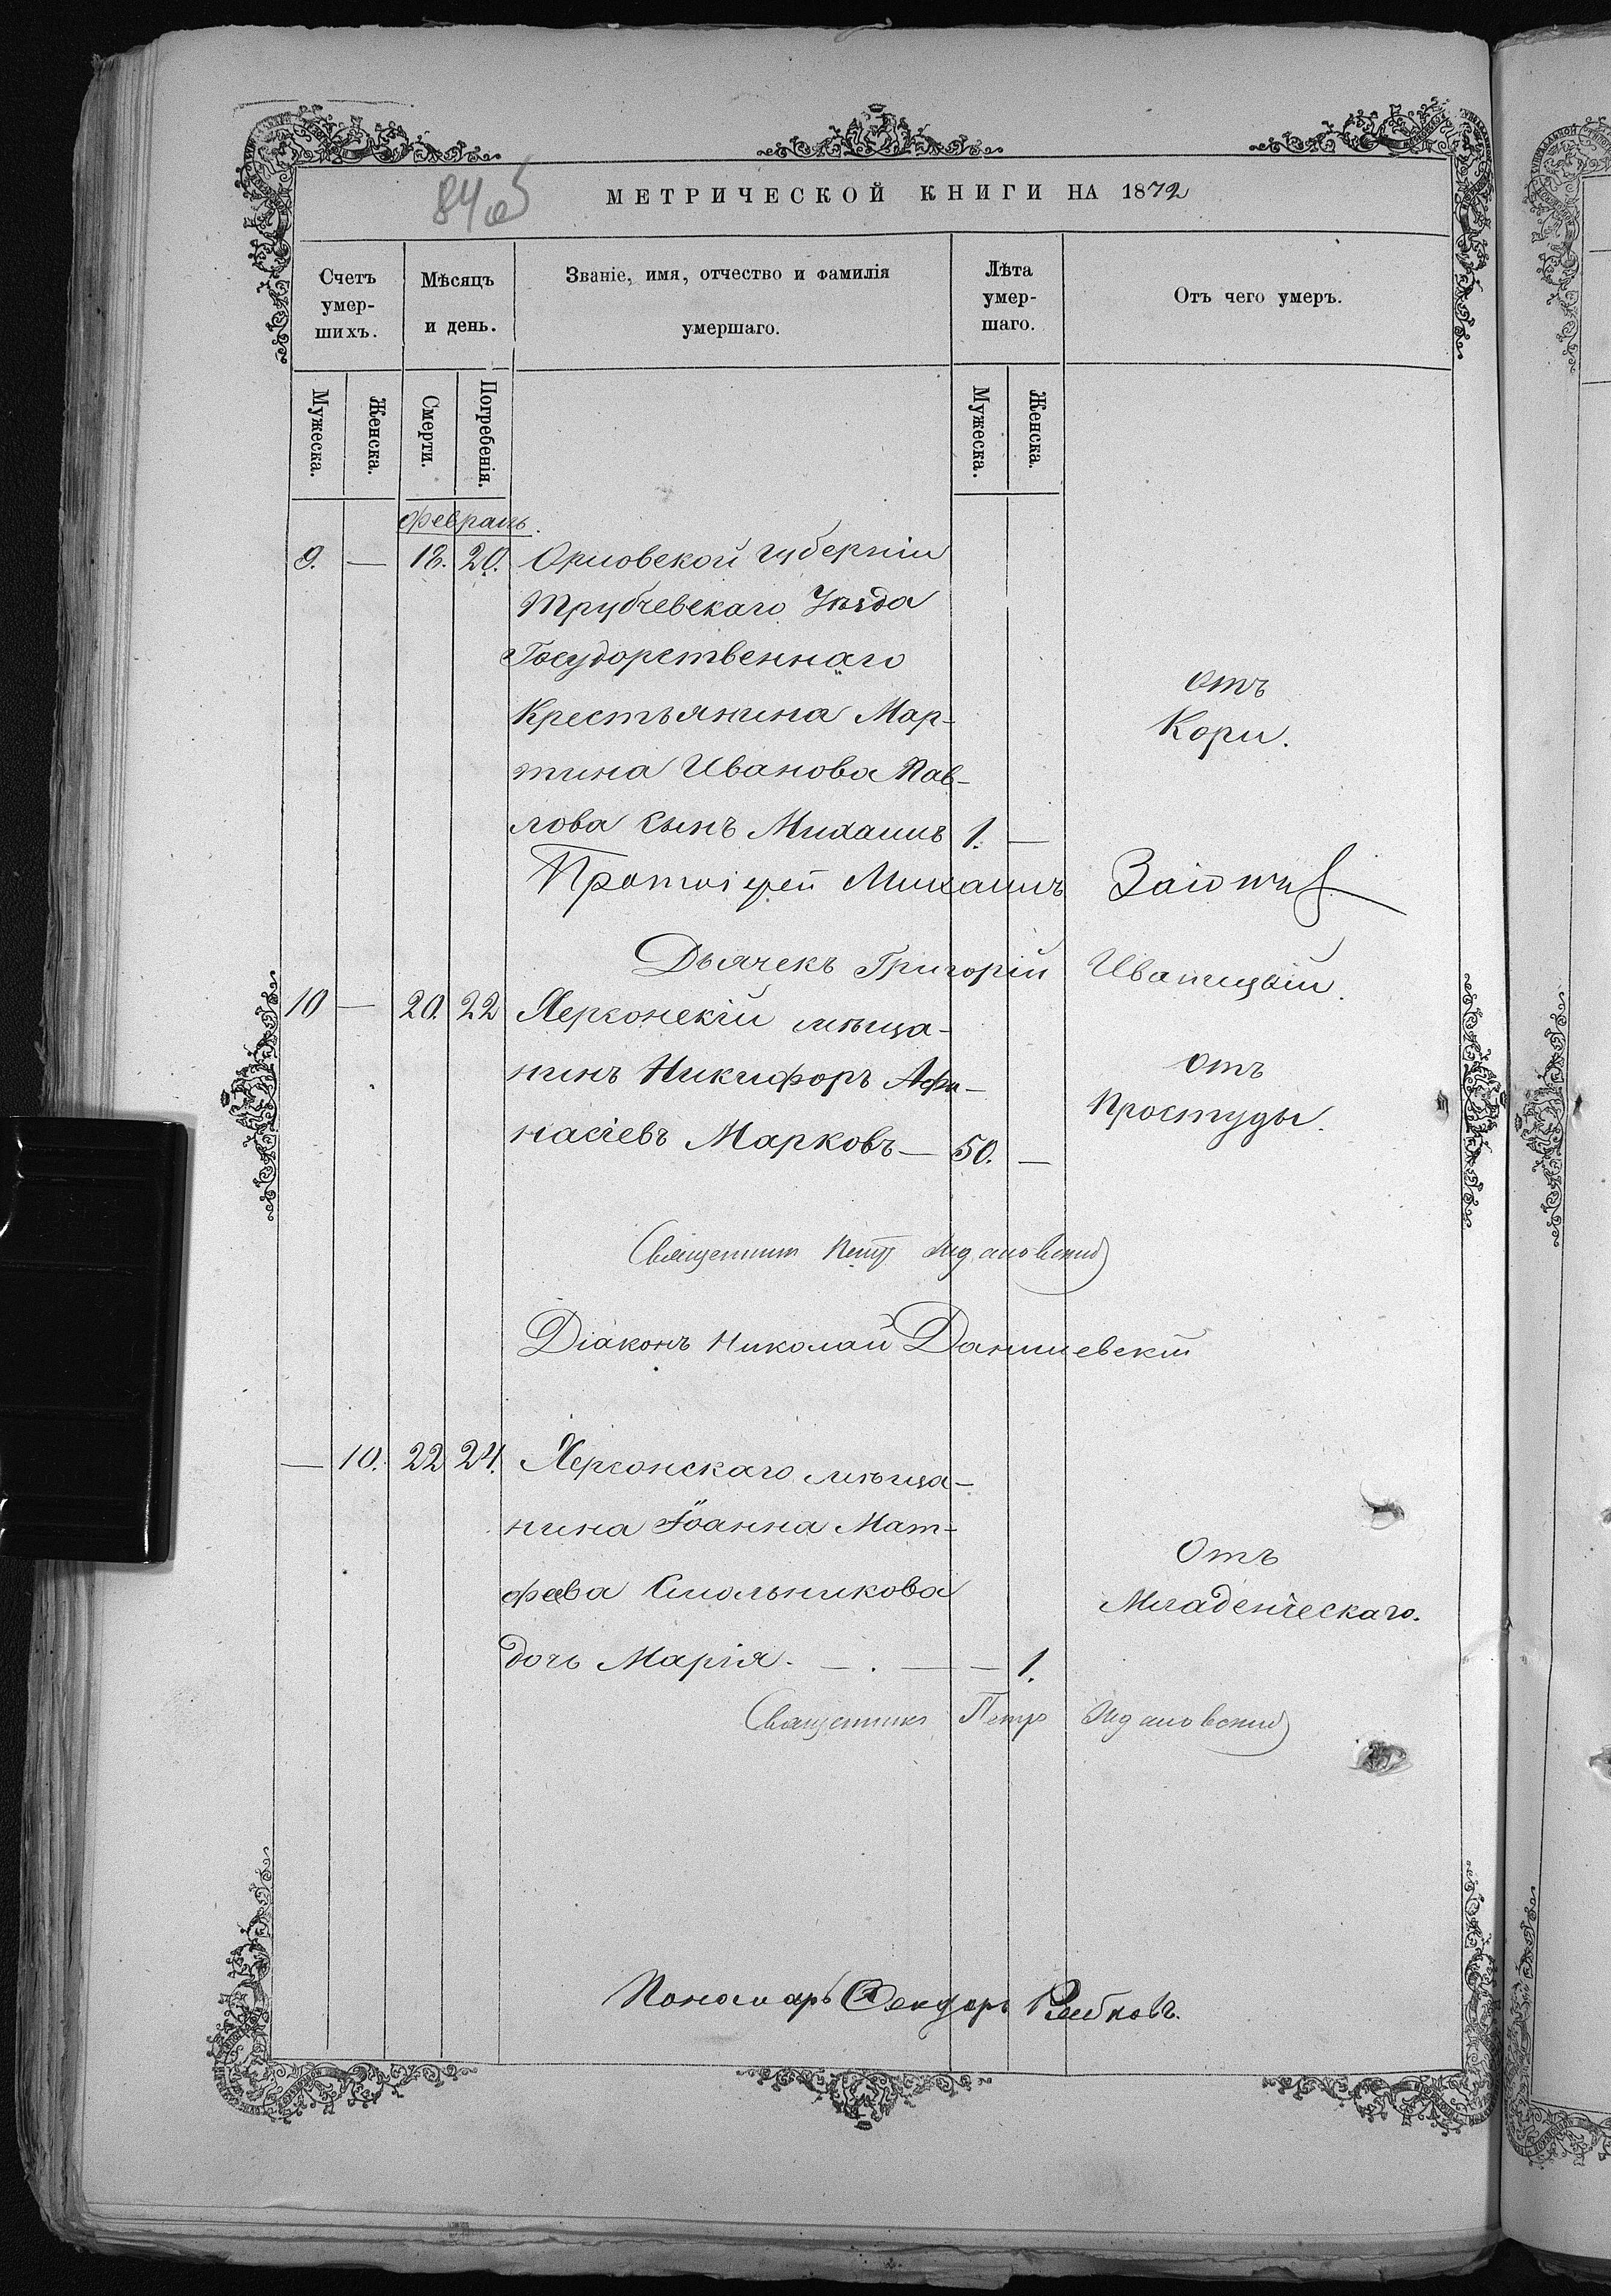 84об
МЕТРИЧЕСКОЙ КНИГИ НА 1872
Счетъ умер-шихъ.
Мѣсяцъ и день.
Званіе, имя, отчество и фамилія умершаго.
Лѣта умер-шаго.
Отъ чего умеръ.
Мужеска.
Женска.
Смерти.
Погребенія.
Мужеска.
Женска.
Февраль.
9. — 18. 20. Орловской Губерніи
Трубчевскаго Уѣзда
Государственнаго
Крестьянина Мар-
тина Иванова Пав-
лова сынъ Михаилъ 1. —
отъ
Кори.
Протоіерей Михаилъ
Дьячекъ Григорій
10 — 20. 22 Херсонскій мѣща-
нинъ Никифоръ Афа-
насіевъ Марковъ — 50. —
отъ
Простуды.
Священник Петр
Діаконъ Николай Данилевскій
— 10. 22 24. Херсонскаго мѣща-
нина Іоанна Мат-
феева Смольникова
дочь Марія. — . — — 1.
Отъ
Младенческаго.
Священникъ Петръ
Пономарь